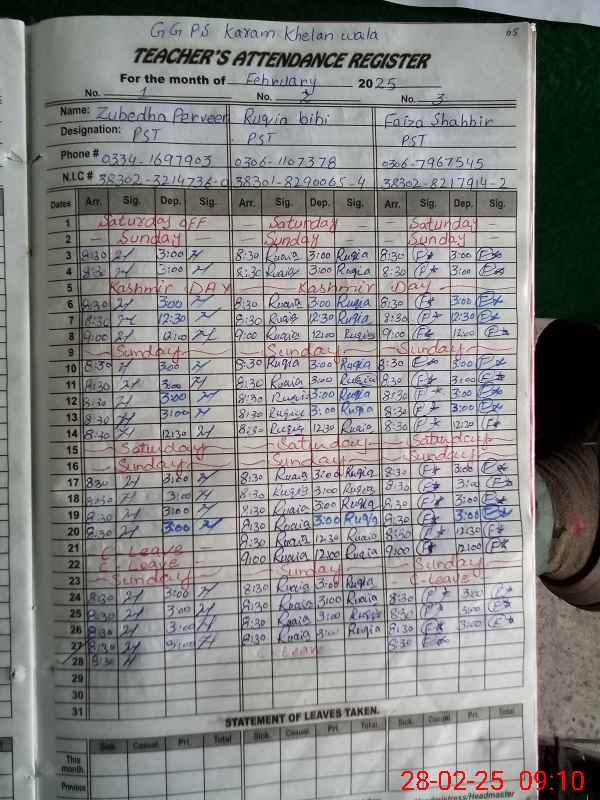 65
G G P S Karam Khelan wala
TEACHER'S ATTENDANCE REGISTER
For the month of February 2025
No. 1 No. 2 No. 3
Name: Zubedha Perveen Ruqia bibi Faiza Shabbir
Designation: PST PST PST
Phone # 0334-1697903 0306-1107378 0306-7967545
N.I.C # 38302-3214736-0 38301-8290065-4 38302-8217914-2
Dates Arr. Sig. Dep. Sig. Arr. Sig. Dep. Sig. Arr. Sig. Dep. Sig.
1 Saturday OFF - Saturday - Saturday
2 - Sunday - - Sunday - Sunday
3 8:30 3:00 8:30 Ruqia 3:00 Ruqia 8:30 F* 3:00 F*
4 8:30 3:00 8:30 Ruqia 3:00 Ruqia 8:30 F* 3:00 F*
5 Kashmir DAY Kashmir Day
6 8:30 3:00 8:30 Ruqia 3:00 Ruqia 8:30 F* 3:00 F*
7 8:30 12:30 8:30 Ruqia 12:30 Ruqia 8:30 F* 12:30 F*
8 9:00 12:00 9:00 Ruqia 12:00 Ruqia 9:00 F* 12:00 F*
9 Sunday Sunday Sunday
10 8:30 3:00 8:30 Ruqia 3:00 Ruqia 8:30 F* 3:00 F*
11 8:30 3:00 8:30 Ruqia 3:00 Ruqia 8:30 F* 3:00 F*
12 8:30 3:00 8:30 Ruqia 3:00 Ruqia 8:30 F* 3:00 F*
13 8:30 3:00 8:30 Ruqia 3:00 Ruqia 8:30 F* 3:00 F*
14 8:30 12:30 8:30 Ruqia 12:30 Ruqia 8:30 F* 12:30 F*
15 Saturday Saturday Saturday
16 Sunday Sunday Sunday
17 8:30 3:00 8:30 Ruqia 3:00 Ruqia 8:30 F* 3:00 F*
18 8:30 3:00 8:30 Ruqia 3:00 Ruqia 8:30 F* 3:00 F*
19 8:30 3:00 8:30 Ruqia 3:00 Ruqia 8:30 F* 3:00 F*
20 8:30 3:00 8:30 Ruqia 3:00 Ruqia 8:30 F* 3:00 F*
21 - C Leave - 8:30 Ruqia 12:30 Ruqia 8:30 F* 12:30 F*
22 C Leave 9:00 Ruqia 12:00 Ruqia 9:00 F* 12:00 F*
23 Sunday Sunday Sunday
24 8:30 3:00 8:30 Ruqia 3:00 Ruqia C-Leave
25 8:30 3:00 8:30 Ruqia 3:00 Ruqia 8:30 F* 3:00 F*
26 8:30 3:00 8:30 Ruqia 3:00 Ruqia 8:30 F* 3:00 F*
27 8:30 8:30 Ruqia 3:00 Ruqia 8:30 F* 3:00 F*
28 8:30 C Leave 8:30 F*
29
30
31
STATEMENT OF LEAVES TAKEN.
Sick Casual Pri. Total Sick Casual Pri. Total Sick Casual Pri. Total
This month
Previous
Headmistress/Headmaster
28-02-25 09:10